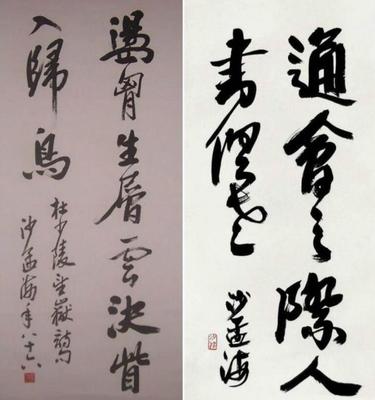 盪胷生層雲決眥
入歸鳥
杜少陵望嶽詩句
沙孟海年八十六
通會之際人
書俱老
沙孟海